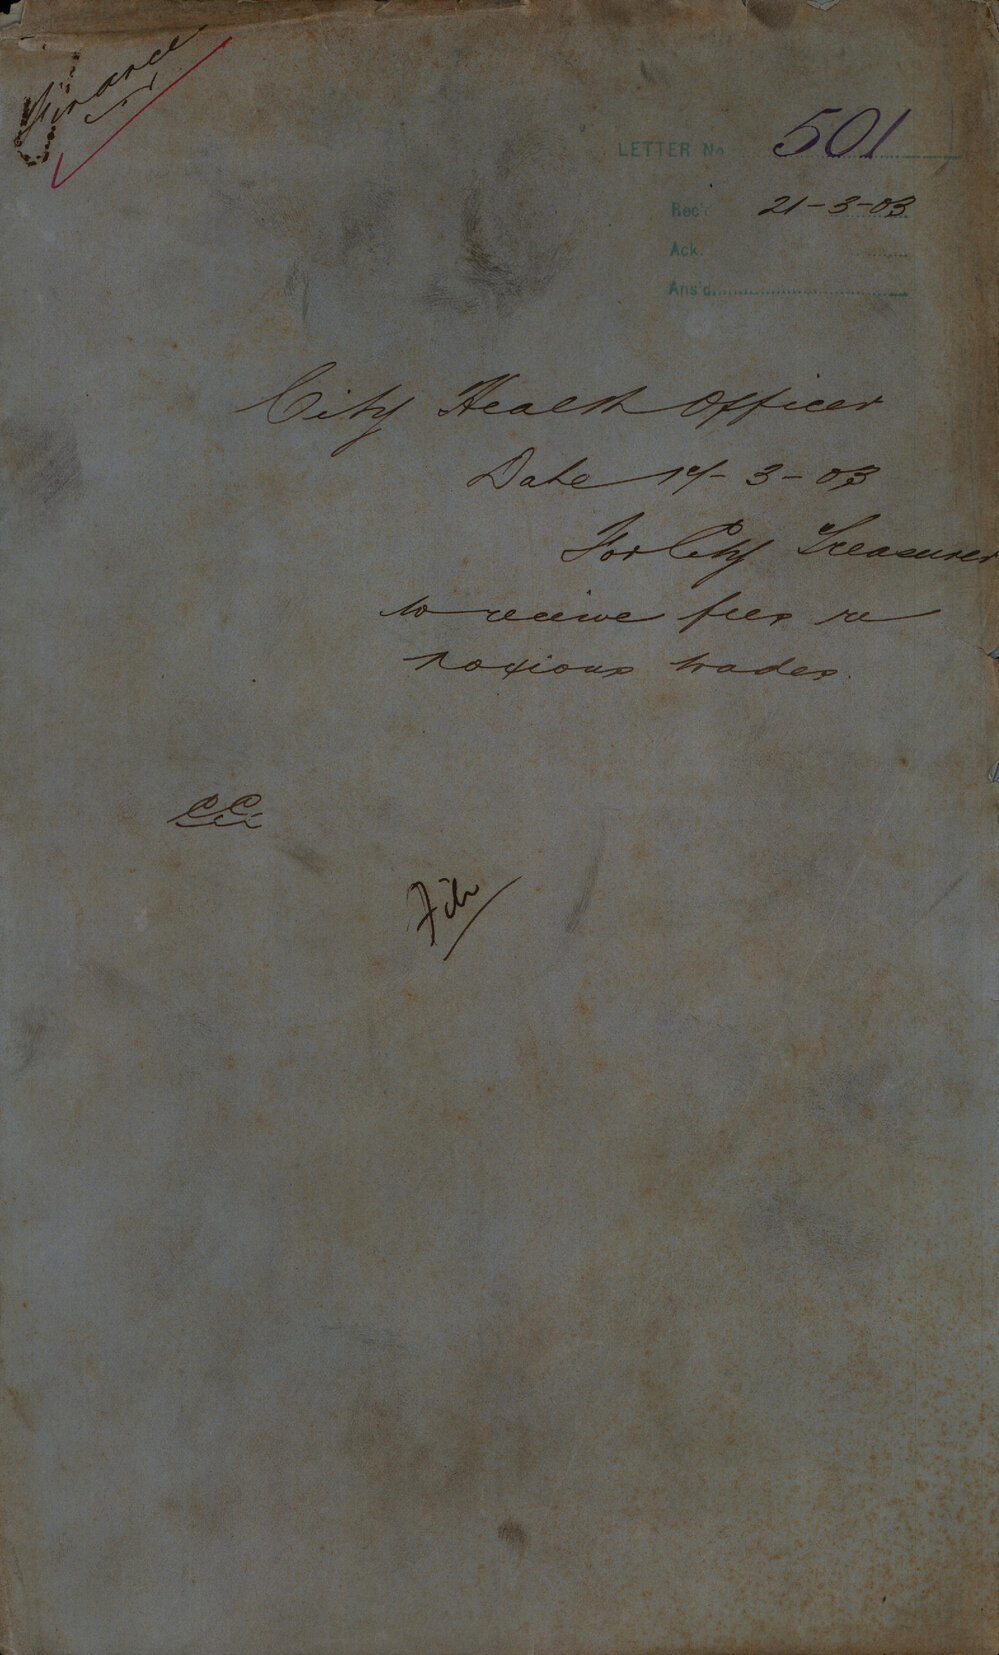 Finance
LETTER No 501
Rec'd 21-3-03
Ack.
Ans'd
City Health Officer
Date 14-3-03
For City Treasurer
to receive fees re
noxious trades.
CC.
File